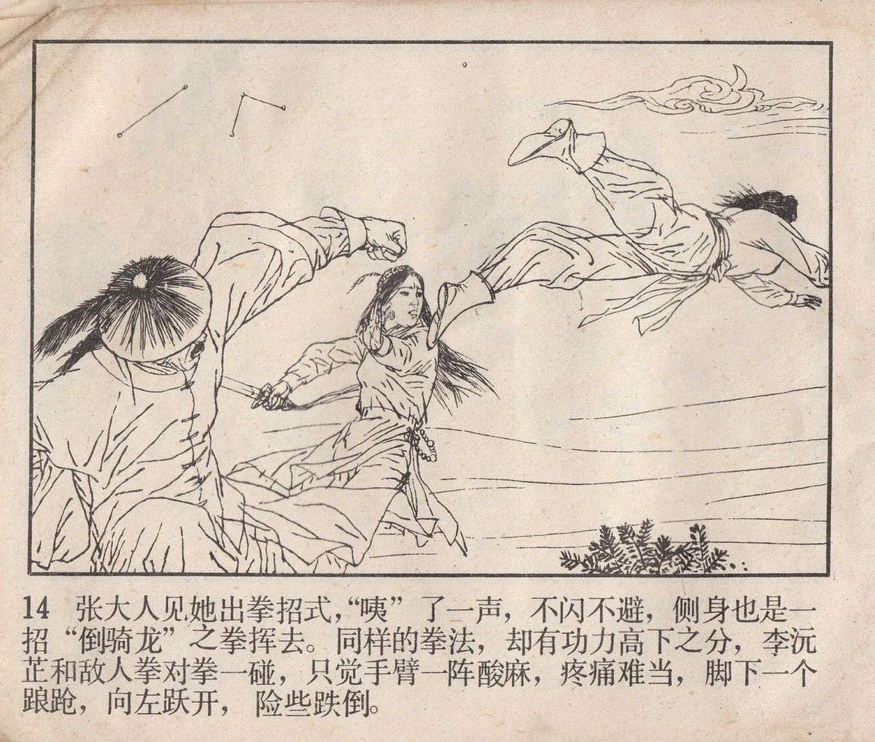 14 张大人见她出拳招式，“咦”了一声，不闪不避，侧身也是一
招“倒骑龙”之拳挥去。同样的拳法，却有功力高下之分，李沅
芷和敌人拳对拳一碰，只觉手臂一阵酸麻，疼痛难当，脚下一个
踉跄，向左跃开，险些跌倒。